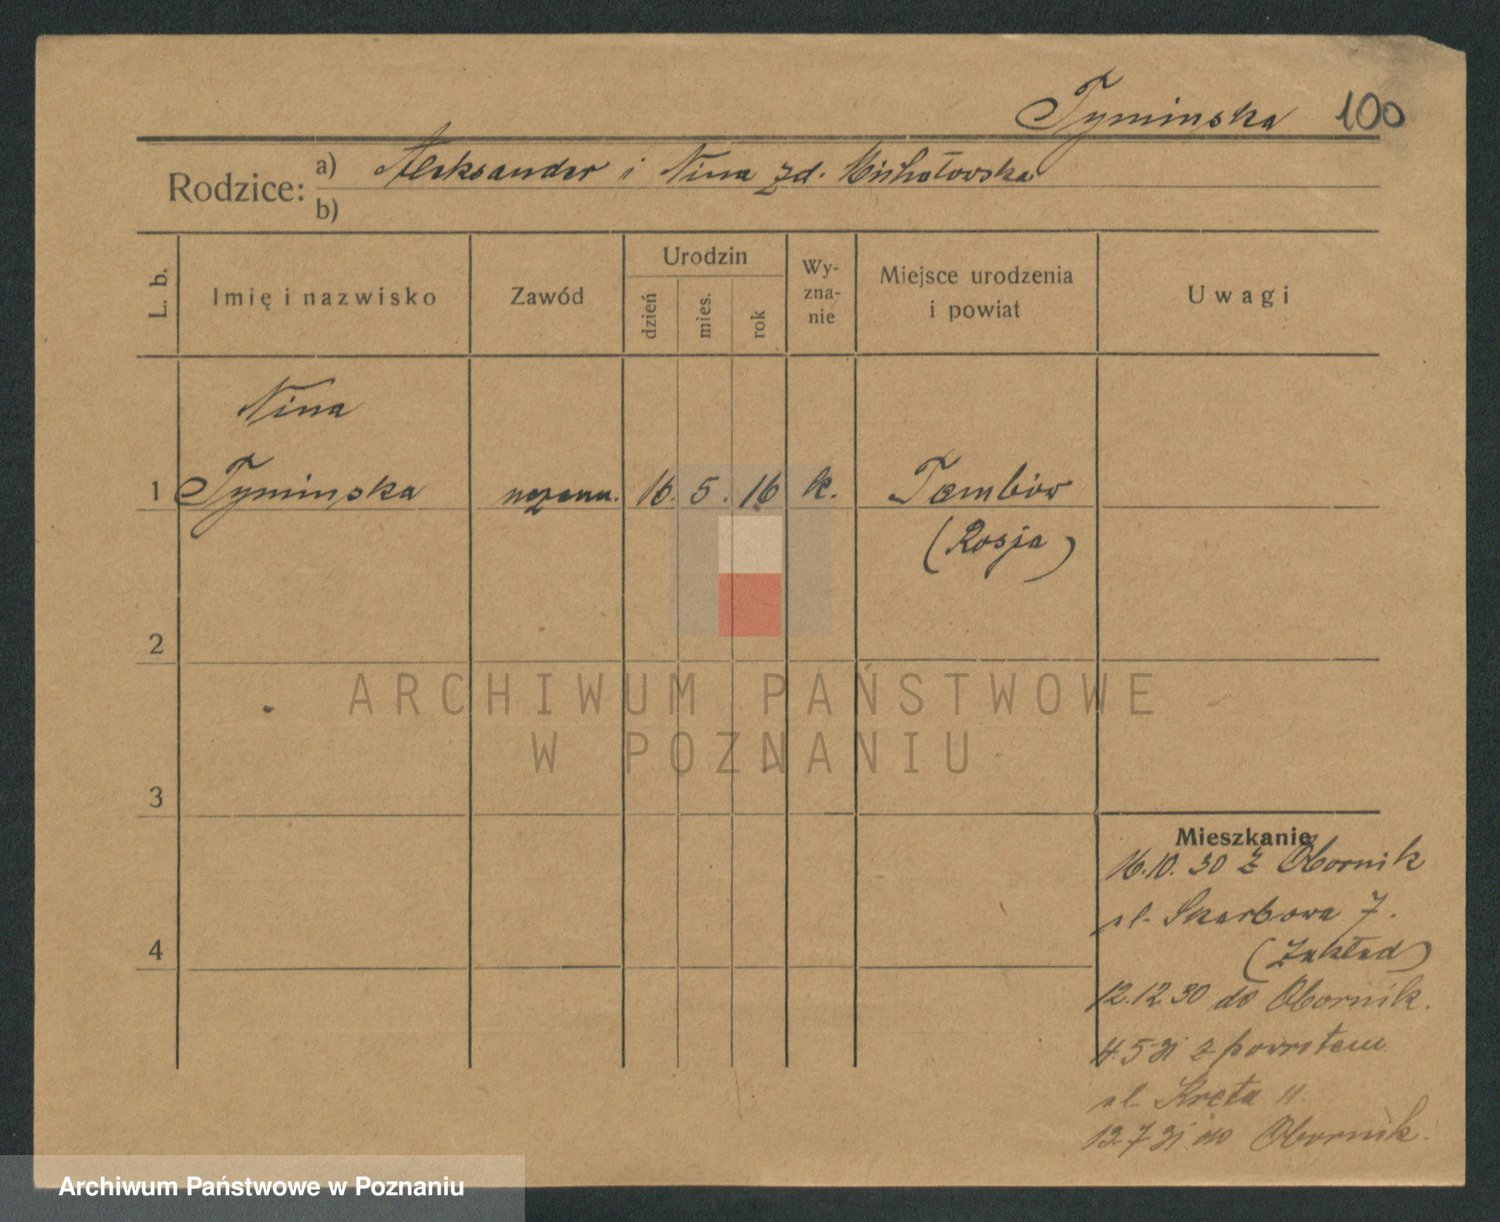 Tyminska 100
Rodzice: a) Aleksander i Nina zd. Michałowska
b)
L. b. Imię i nazwisko Zawód Urodzin dzień mies. rok Wy-zna-nie Miejsce urodzenia i powiat Uwagi
Nina
1 Tyminska uczenn. 16. 5. 16 k. Tambów
(Rosja)
2
ARCHIWUM PAŃSTWOWE
W POZNANIU
3
Mieszkanie
16.10.30 z Obornik
ul. Skarbowa 7.
(Zakład)
4
12.12.30 do Obornik.
4.5.31 z powrotem
ul. Kręta 11.
13.7.31 do Obornik.
Archiwum Państwowe w Poznaniu